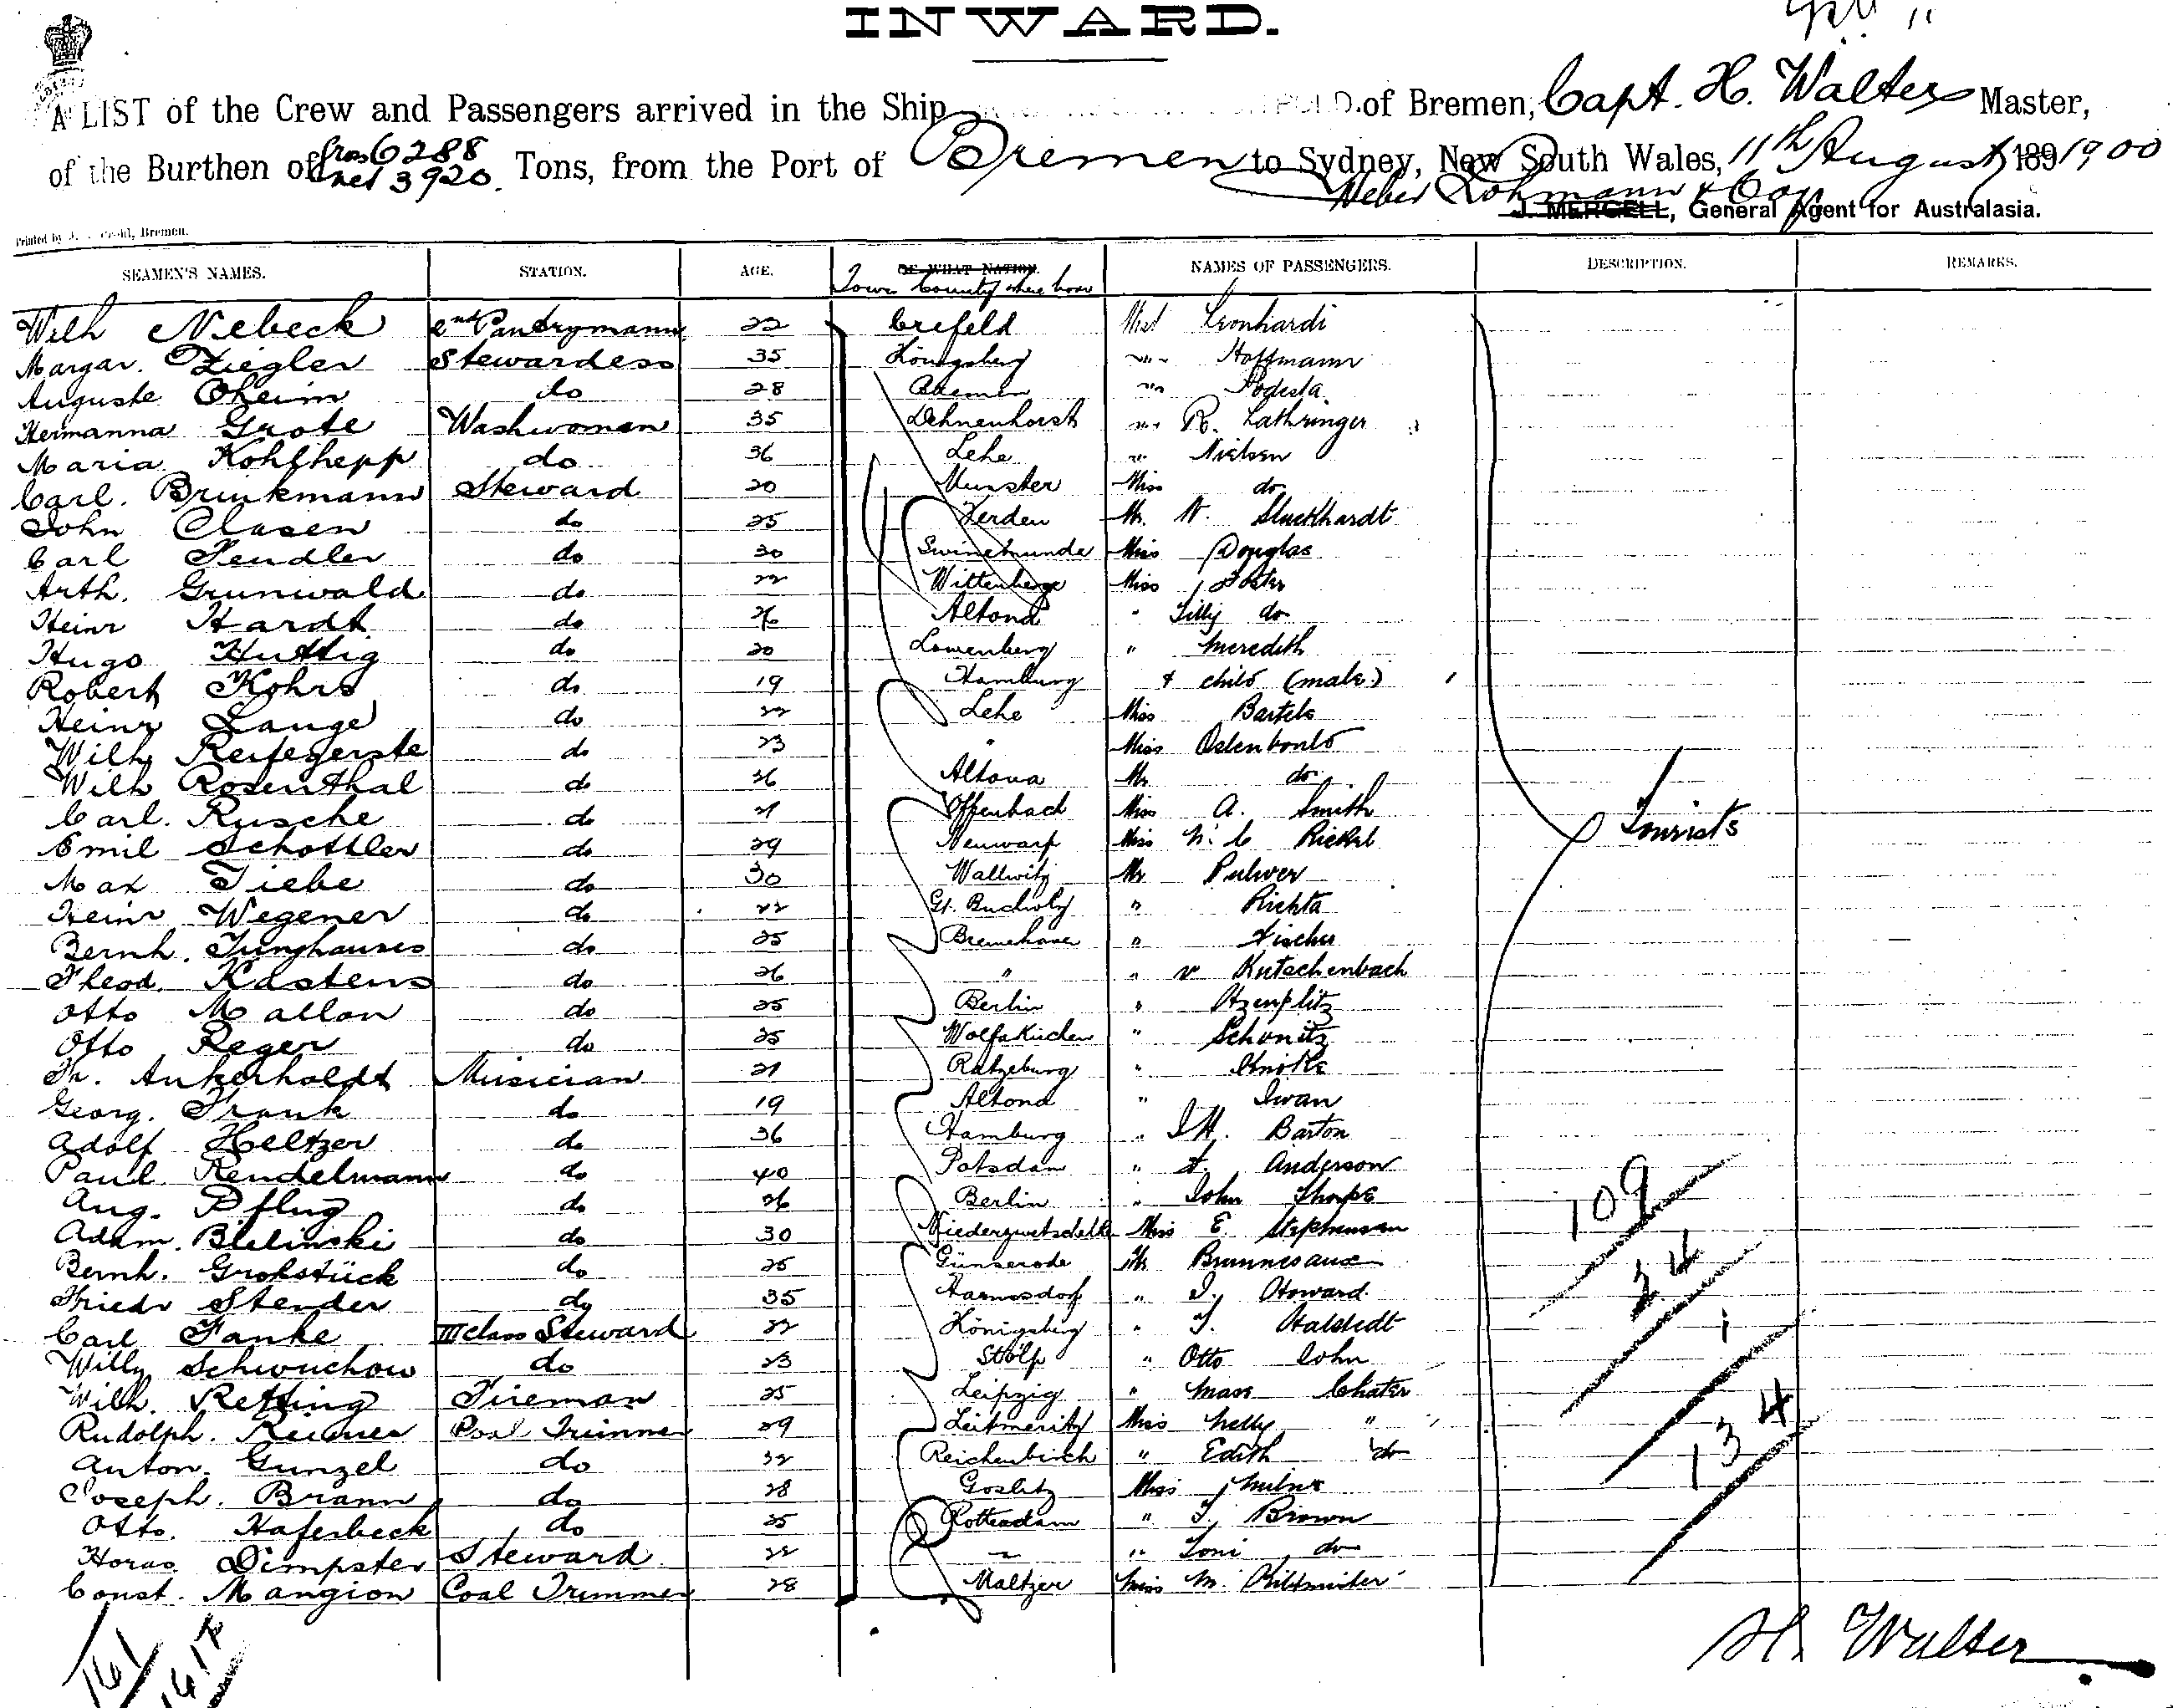 INWARD.
A LIST of the Crew and Passengers arrived in the Ship of Bremen, Capt. H. Walter Master,
of the Burthen of gross 6288 net 3920 Tons, from the Port of Bremen to Sydney, New South Wales, 11th August 189 1900
Weber Lohmann & Coy
J. MERGELL, General Agent for Australasia.
Printed by Bremen.
SEAMEN'S NAMES. STATION. AGE. OF WHAT NATION. NAMES OF PASSENGERS. DESCRIPTION. REMARKS.
Town County where born
Wilh Nebeck 2nd Pantrymann 22 Crefeld Leonhardi
Margar. Ziegler Stewardess 35 Königsberg Hoffmann
Auguste Oheim do 28 Bremen Podesta
Hermanna Grote Washwoman 35 Delmenhorst R. Lathringer
Maria Kohlhepp do 36 Lehe Nielsen
Carl. Brinkmann Steward 20 Munster Miss do
John Clasen do 25 Verden Mr. W. Stuckhardt
Carl Fendler do 30 Swinemunde Miss Douglas
Arth. Grunwald do 22 Wittenberge Miss Foster
Heinr Hardt do 26 Altona " Lilly do
Hugo Huttig do 20 Lowenberg " Meredith
Robert Kohrs do 19 Hamburg & child (male)
Heinr Lange do 22 Lehe Miss Bartels
Wilh Reifegerste do 23 " Miss
Wilh Rosenthal do 26 Altona Mr do
Carl. Rusche do 21 Offenbach Miss A. Smith
Emil Schottler do 29 Neuwarp Miss
Max Tiebe do 30 Wallwitz Mr Pulver
Heinr Wegener do 22 Gr. Bucholz " Richta
Bernh. Junghanns do 25 Bremehaven " Fischer
Theod. Kastens do 26 " " v Kutschenbach
Otto Mallon do 25 Berlin " Itzenplitz
Otto Reger do 25 Wolfskirchen " Schonitz
Fr. Ankerholdt Musician 21 Ratzeburg "
Georg. Frank do 19 Altona " Iwan
Adolf Heltzer do 36 Hamburg " J H. Barton
Paul Rendelmann do 40 Potsdam " F. Anderson
Aug. Pflug do 26 Berlin " John Thorpe
Adam. Bielinski do 30 Miss E. Stephenson
Bernh. Grohstück do 25 Günserode Mr
Friedr Stender do 35 Harmsdorf " J. Howard
Carl Janke III class Steward 22 Königsberg " J. Halstedt
Willy Schwuchow do 23 Stolp " Otto John
Wilh. Retting Fireman 25 Leipzig " Mass Chater
Rudolph. Coal Trimmer 29 Leitmeritz Miss Nelly "
Anton. Gunzel do 32 " Edith do
Joseph. Brann do 28 Miss Milne
Otto. Haferbeck do 25 Rotterdam " J. Brown
Horas. Dimpster Steward 22 " " Toni do
Const. Mangion Coal Trimmer 28 Maltzer Miss M.
Tourists
109
24
1
134
161
H. Walter